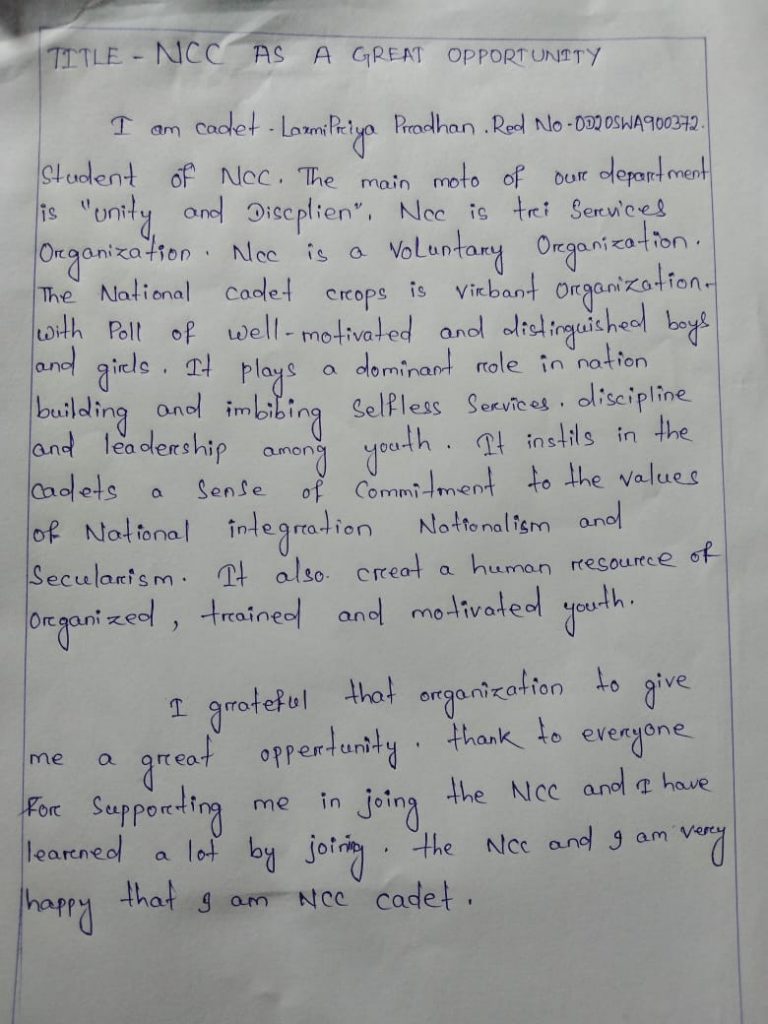 TITLE - NCC AS A GREAT OPPORTUNITY
I am cadet - LaxmiPriya Pradhan. Red No - OD20SWA900372.
Student of NCC. The main moto of our department
is "unity and Discplien". Ncc is tri Services
Organization. Ncc is a Voluntary Organization.
The National cadet crops is virbant organization.
with Poll of well-motivated and distinguished boys
and girls. It plays a dominant role in nation
building and imbibing Selfless Services. discipline
and leadership among youth. It instils in the
cadets a sense of Commitment to the values
of National integration Nationalism and
Secularism. It also. creat a human resource of
Organized, trained and motivated youth.
I grateful that organization to give
me a great oppertunity. thank to everyone
For Supporting me in joing the NCC and I have
learned a lot by joining. the NCC and I am very
happy that I am NCC cadet.